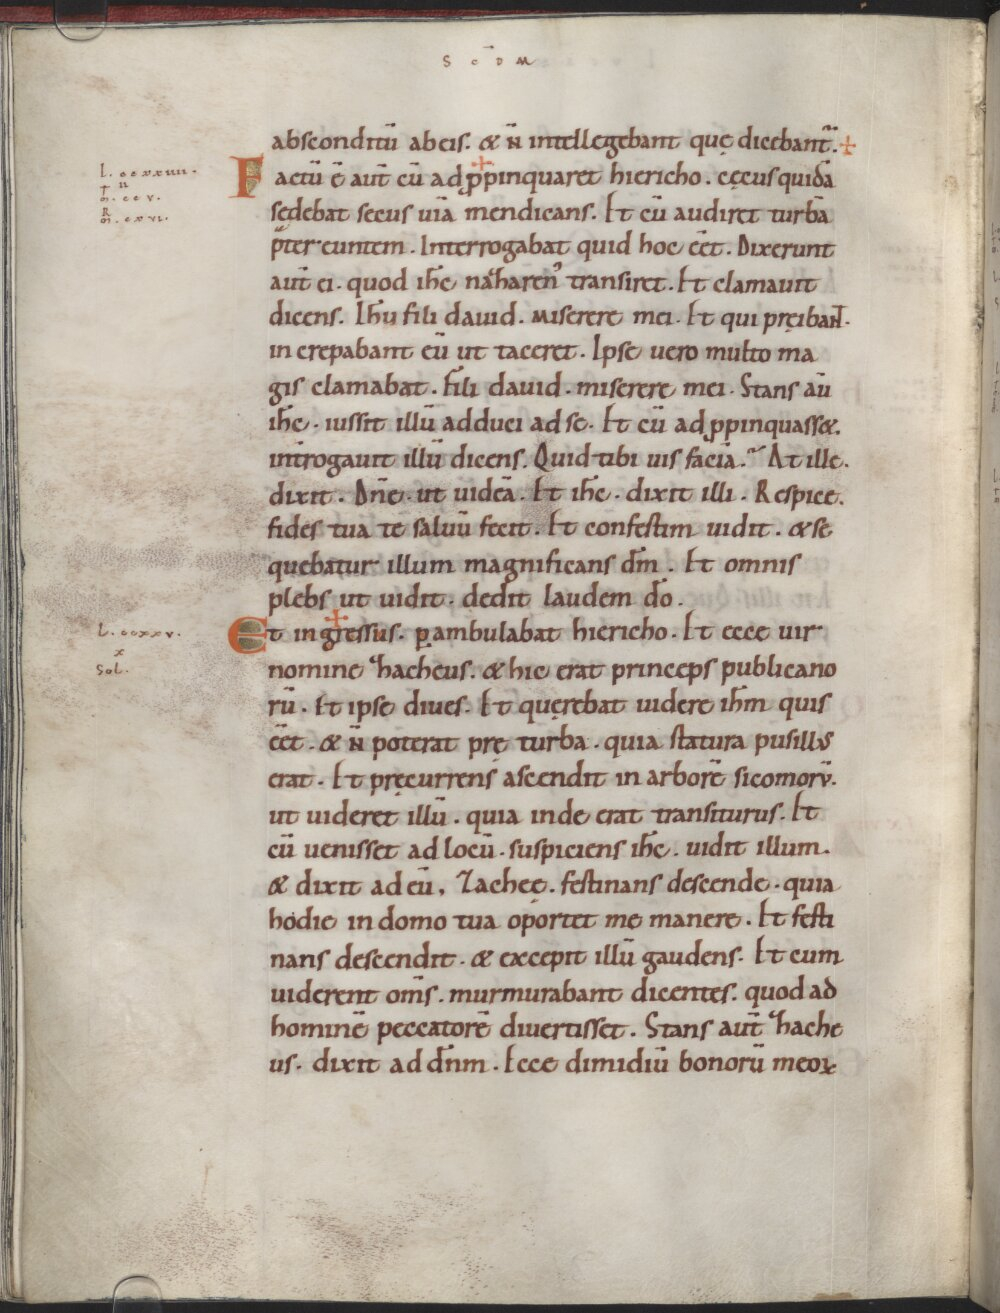 S C̄D M
absconditū ab eis. & N̄ intellegebant quę dicebant̄.
L. ccxxiiii.
Factū ē aut̄ cū adp̱pinquaret hiericho. cęcus quidā
m̄. ccv.
sedebat secus uiā mendicans. Et cū audiret turbā
m̄. cxvi.
p̄tereuntem. Interrogabat quid hoc eēt. Dixerunt
aut̄ ei. quod ih̄c naꝣharen᾽ transiret. Et clamauit
dicens. Ih̄u fili dauid. miserere mei. Et qui pręibaNT.
increpabant eū ut taceret. Ipse uero multo ma
gis clamabat. Fili dauid. miserere mei. Stans aū
ih̄c. iussit illū adduci ad se. Et cū adp̱pinquass&.
int̄rogauit illū dicens. Quid tibi uis faciā. At ille.
dixit. Dn̄e. ut uideā. Et ih̄c. dixit illi. Respice.
fides tua te saluū fecit. Et confestim uidit. & se
quebatur illum magnificans dm̄. Et omnis
plebs ut uidit. dedit laudem dō.
L. ccxxv.
Et ingressus. ꝑambulabat hiericho. Et ecce uir
x
Sol.
nomine ꝣhacheus. & hic erat princeps publicano
rū. Et ipse diues. Et quęrebat uidere ih̄m quis
eēt. & N̄ poterat prę turba. quia statura pusillus
erat. Et pręcurrens ascendit in arborē sicomorv̄.
ut uideret illū. quia inde erat transiturus. Et
cū uenisset ad locū. suspiciens ih̄c. uidit illum.
& dixit ad eū, Zachee. festinans descende. quia
hodie in domo tua oportet me manere. Et festi
nans descendit. & excepit illū gaudens. Et cum
uiderent om̄s. murmurabant dicentes. quod ad
hominē peccatorē diuertisset. Stans aut̄ ꝣhache
us. dixit ad dn̄m. Ecce dimidiū bonorū meoꝝ